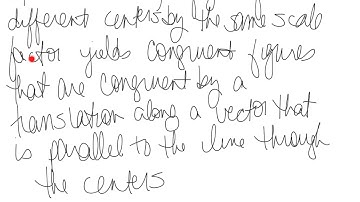 different centers by the same scale
factor yields congruent figures
that are congruent by a
translation along a vector that
is parallel to the line through
the centers